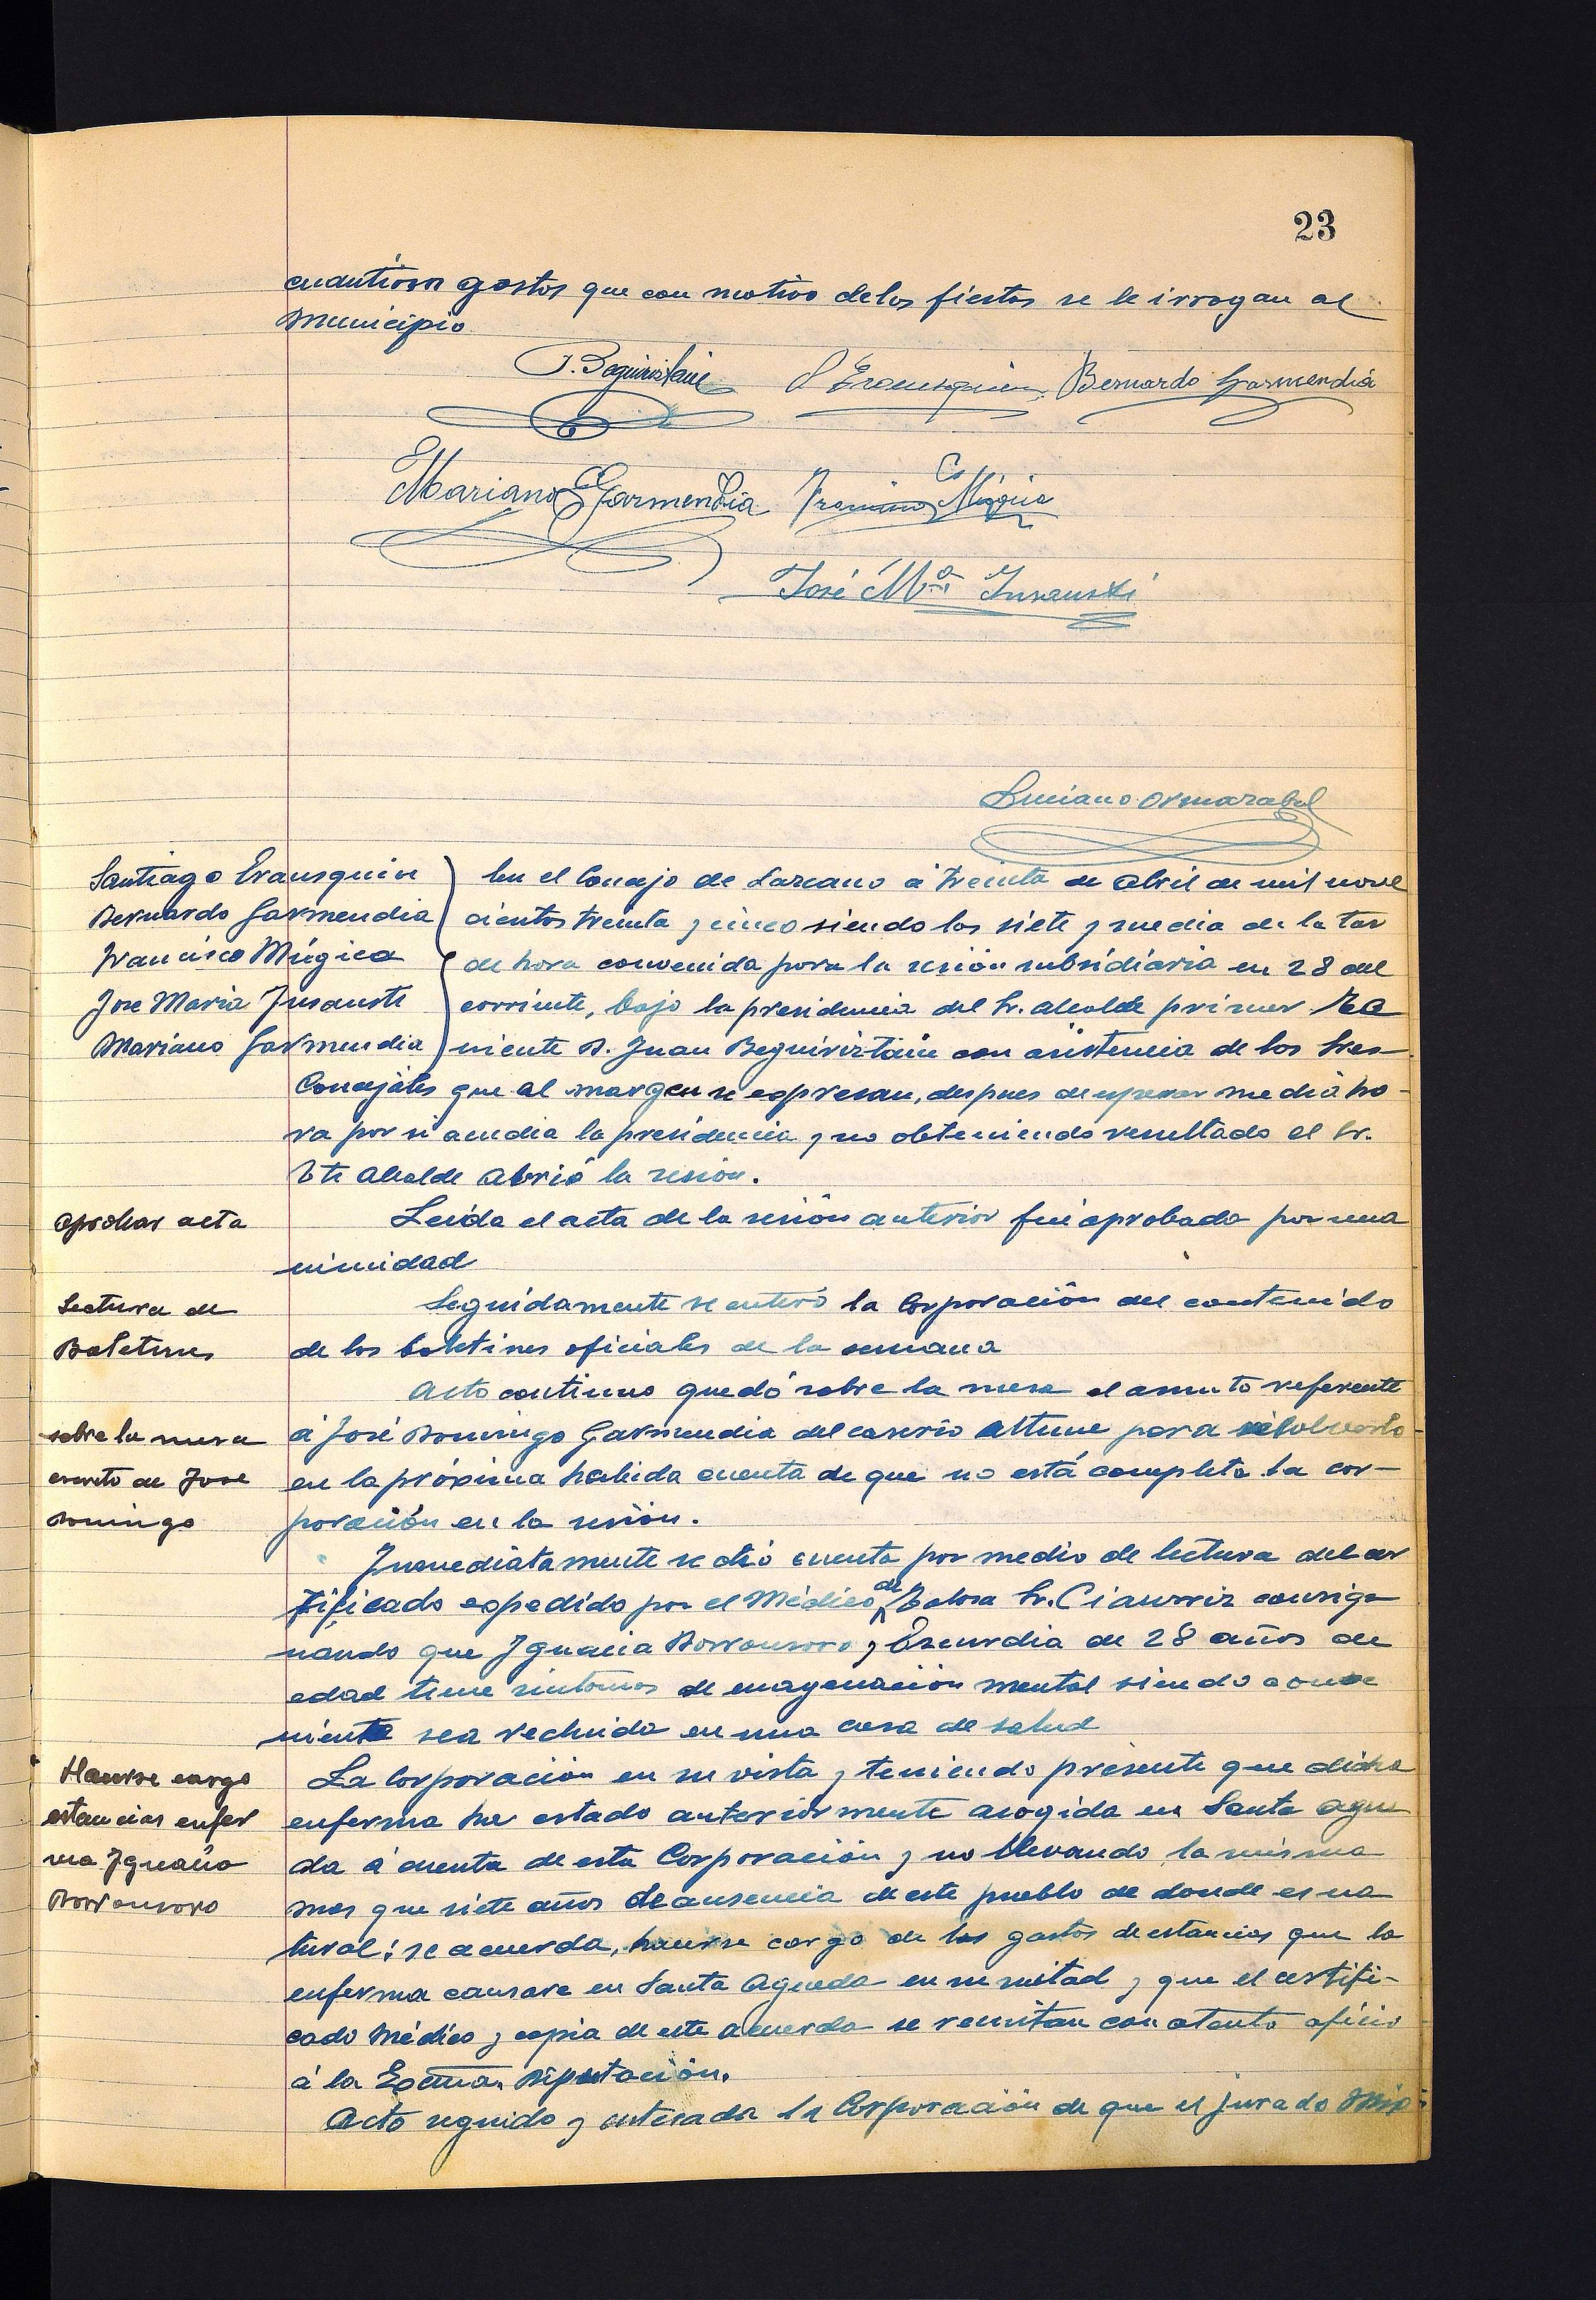 23
cuantiosos gastos que con motivo de las fiestas se le irrogan al
municipio
J. Beguiristain S Erausquin Bernardo Garmendia
Mariano Garmendia Francisco Múgica
José Mª Insausti
Luciano Ormazabal
Santiago Erausquin
Bernardo Garmendia
Francisco Múgica
Jose Maria Insausti
Mariano Garmendia
En el Concejo de Lazcano á treinta de abril de mil nove
cientos treinta y cinco siendo las siete y media de la tar
de hora convenida para la sesión subsidiaria en 28 del
corriente, bajo la presidencia del Sr. alcalde primer te
niente D. Juan Beguiriztain con asistencia de los Sres
Concejales que al margen se expresan, despues de esperar media ho-
ra por si acudia la presidencia y no obteniendo resultado el Sr.
Tte alcalde abrió la sesión.
aprobar acta
Leida el acta de la sesión anterior fué aprobada por una
nimidad
Lectura de
Boletines
Seguidamente se enteró la Corporación del contenido
de los boletines oficiales de la semana
sobre la mesa
escrito de Jose
Domingo
Acto continuo quedó sobre la mesa el asunto referente
á José Domingo Garmendia del caserio Altune para resolverlo
en la próxima habida cuenta de que no está completa la cor-
poración en la sesión.
Inmediatamente se dió cuenta por medio de lectura del cer
tificado expedido por el Médico de Tolosa Sr. Ciaurriz consig
nando que Ignacia Borronsoro y Escurdia de 28 años de
edad tiene sintomas de enagenación mental siendo conve
niente sea recluida en una casa de salud
Hacerse cargo
estancias enfer
ma Ignacia
Borronsoro
La Corporación en su vista y teniendo presente que dicha
enferma ha estado anteriormente acogida en Santa Ague
da á cuenta de esta Corporación y no llevando la misma
mas que siete años de ausencia de este pueblo de donde es na
tural: se acuerda, hacerse cargo de los gastos de estancias que la
enferma causare en Santa Agueda en su mitad y que el certifi-
cado médico y copia de este acuerdo se remitan con atento oficio
á la Excma. Diputación.
Acto seguido y enterada la Corporación de que el jurado Mix